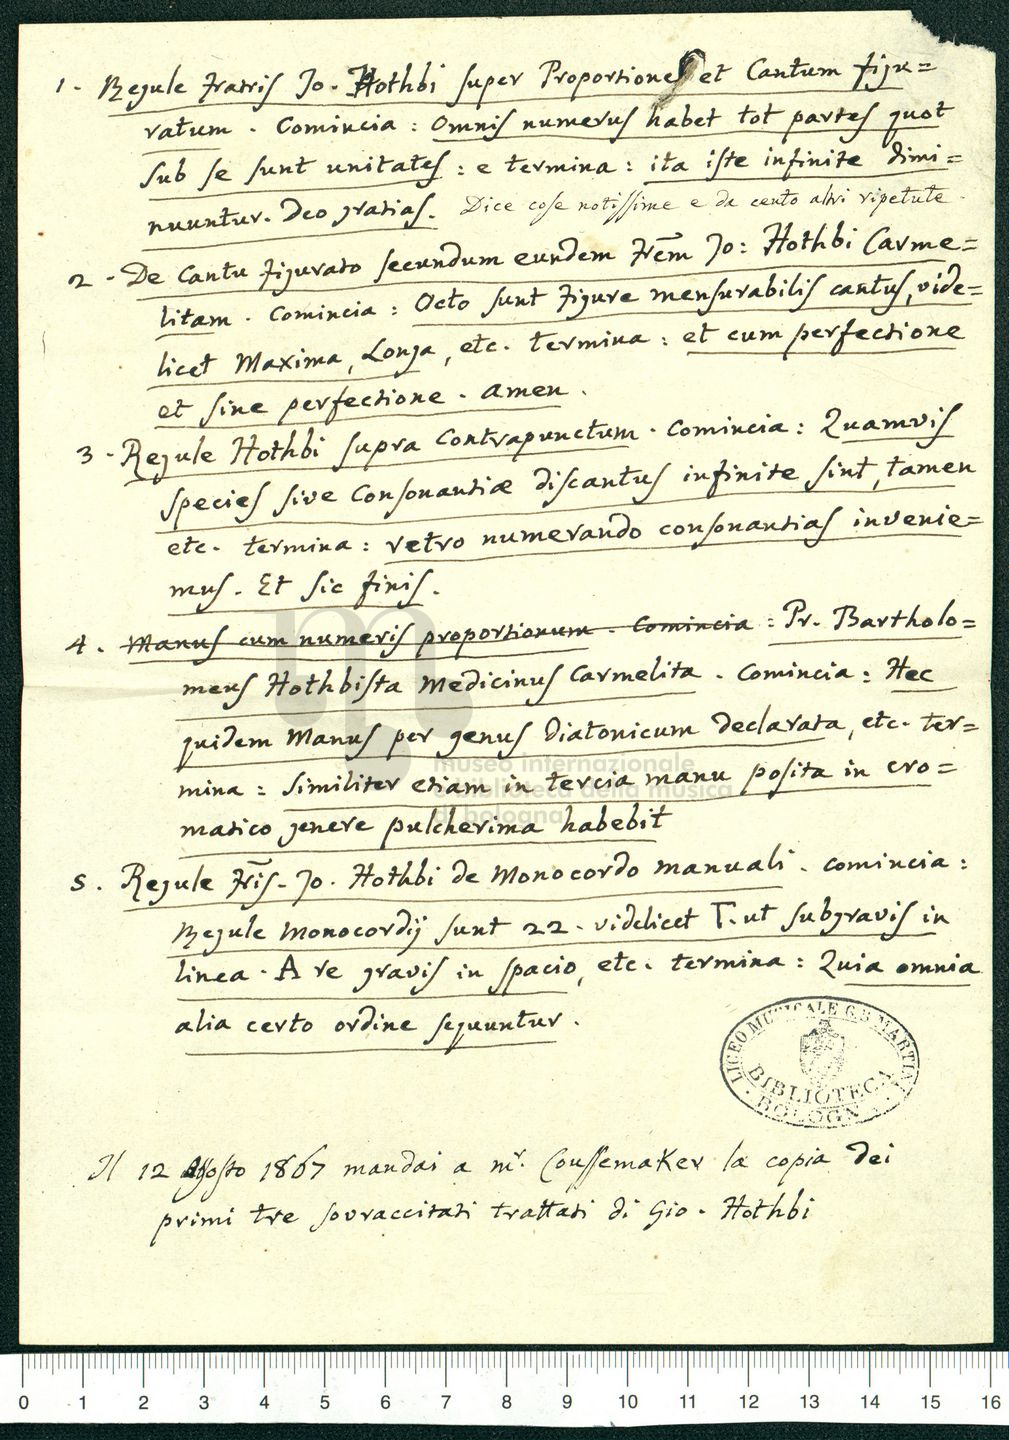 1. Regule Fratris Jo. Hothbi super Proportiones et Cantum figu=
ratum. Comincia: Omnis numerus habet tot partes quot
sub se sunt unitates: e termina: ita iste infinite dimi=
nuuntur. Deo gratias. Dice cose notissime e da cento altri ripetute.
2. De Cantu figurato secundum eundem Frēm Jo: Hothbi Carme=
litam. Comincia: Octo sunt figure mensurabilis cantus, vide=
licet Maxima, Longa, etc. termina: et cum perfectione
et sine perfectione. Amen.
3. Regule Hothbi supra Contrapunctum. Comincia: Quamvis
species sive Consonantiæ discantus infinite sint, tamen
etc. termina: retro numerando consonantias invenie=
mus. Et sic finis.
4. Manus cum numeris proportionum. Comincia: Pr. Bartholo=
meus Hothbista Medicinus Carmelita. Comincia: Hec
quidem Manus per genus Diatonicum declarata, etc. ter=
mina: similiter etiam in tercia manu posita in cro=
matico genere pulcherima habebit
5. Regule Fr̄is. Jo. Hothbi de Monocordo manuali. comincia:
Regule Monocordij sunt 22. videlicet Γ. ut subgravis in
linea. A re gravis in spacio, etc. termina: Quia omnia
alia certo ordine sequuntur.
LICEO MUSICALE G.B. MARTINI
BIBLIOTECA
BOLOGNA
Il 12 Agosto 1867 mandai a mr. Coussemaker la copia dei
primi tre sovraccitati trattati di Gio. Hothbi
museo internazionale
e biblioteca della musica
di bologna
0 1 2 3 4 5 6 7 8 9 10 11 12 13 14 15 16